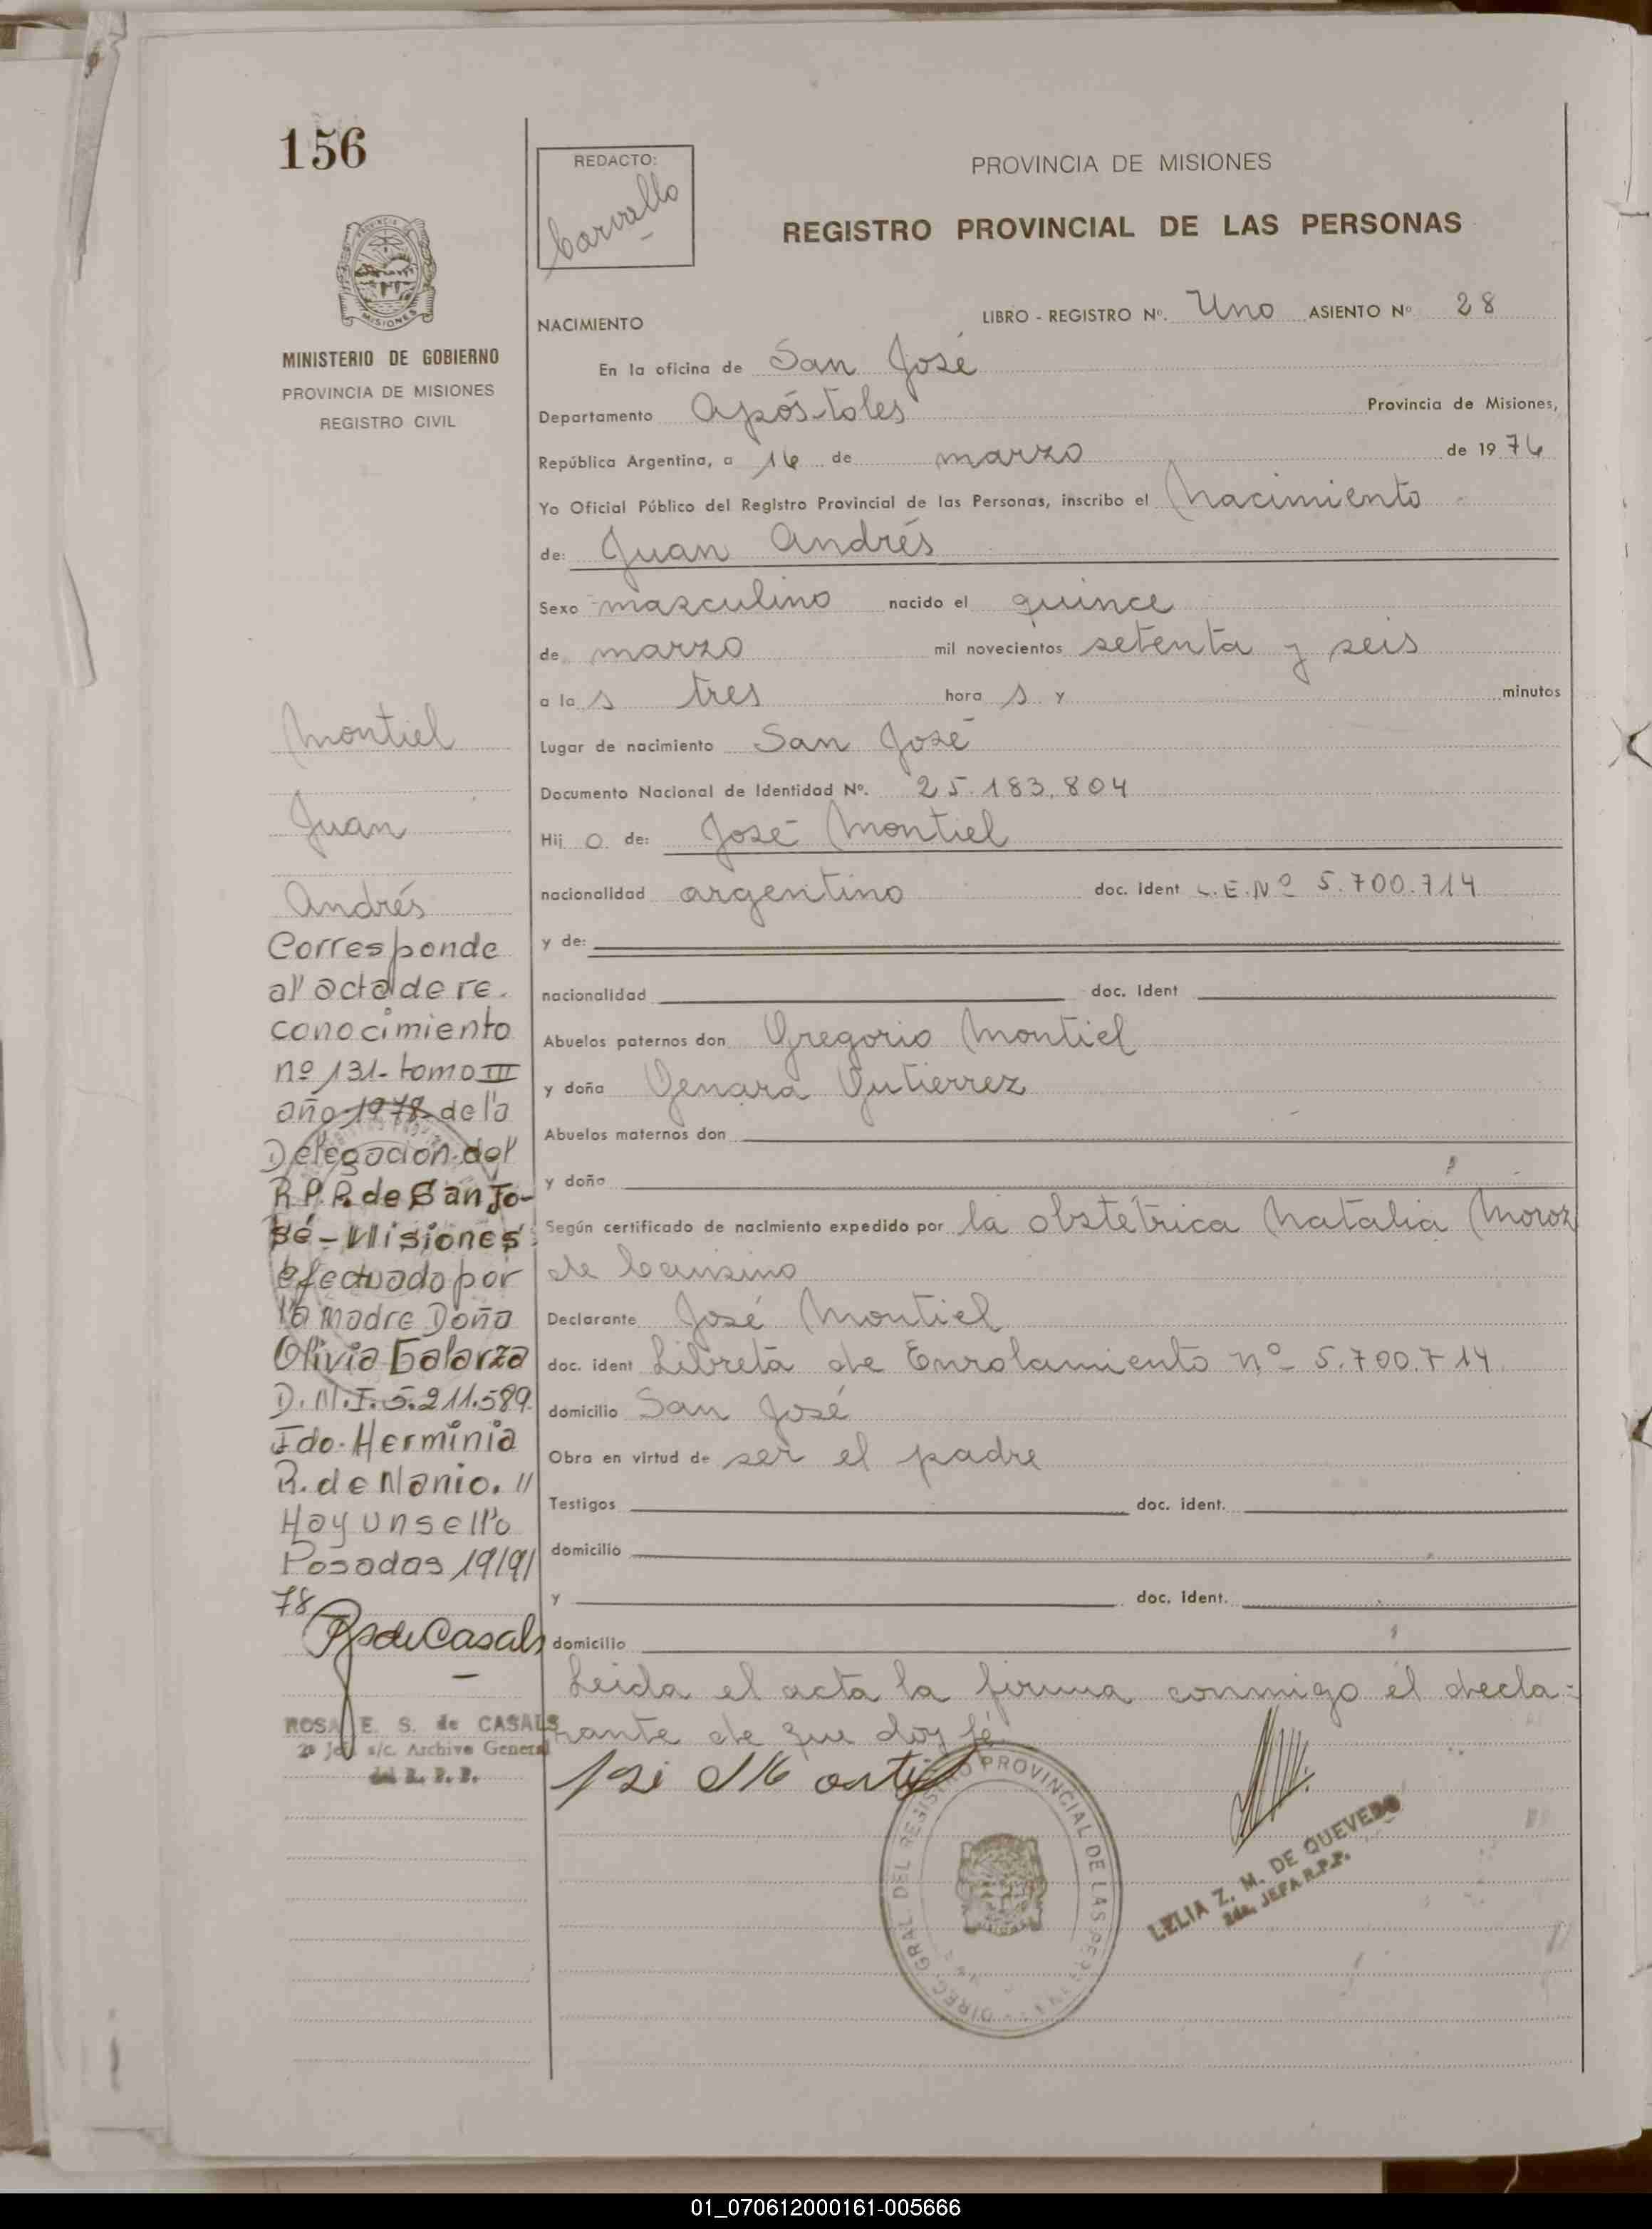 156
REDACTO:
Carvallo
PROVINCIA DE MISIONES
REGISTRO PROVINCIAL DE LAS PERSONAS
MISIONES
MINISTERIO DE GOBIERNO
PROVINCIA DE MISIONES
REGISTRO CIVIL
NACIMIENTO
LIBRO - REGISTRO Nº. Uno ASIENTO Nº 28
En la oficina de San José
Departamento Apóstoles Provincia de Misiones,
República Argentina, a 16 de marzo de 1976
Yo Oficial Público del Registro Provincial de las Personas, inscribo el Nacimiento
de: Juan Andrés
Sexo masculino nacido el quince
de marzo mil novecientos setenta y seis
a la s tres hora s y minutos
Lugar de nacimiento San José
Documento Nacional de Identidad Nº. 25.183.804
Hij o de: José Montiel
nacionalidad argentino doc. ident L.E.Nº 5.700.714
y de:
nacionalidad doc. ident
Abuelos paternos don Gregorio Montiel
y doña Genara Gutierrez
Abuelos maternos don
y doña
Según certificado de nacimiento expedido por la obstétrica Natalia Moroz
de
Declarante José Montiel
doc. ident Libreta de Enrolamiento nº 5.700.714
domicilio San José
Obra en virtud de ser el padre
Testigos doc. ident.
domicilio
y doc. ident.
domicilio
Leida el acta la firma conmigo el decla-
rante de que doy fé
Montiel
Juan
Andrés
Corresponde
al acta de re.
conocimiento
nº 131- tomo III
año 1978 de la
Delegación del
R.P.P. de San Jo-
sé - Misiones
efectuado por
la madre Doña
Olivia Galarza
D.N.I. 5.211.589
Fdo. Herminia
R. de Nanio. "
Hay un sello
Posadas 19/9/
78
R de Casals
ROSA E. S. de CASALS
2ª Jefa s/c. Archivo General
del R. P. P.
DIREC. GRAL. DEL REGISTRO PROVINCIAL DE LAS PERS
LELIA Z. M. DE QUEVEDO
2da. JEFA R.P.P.
01_070612000161-005666